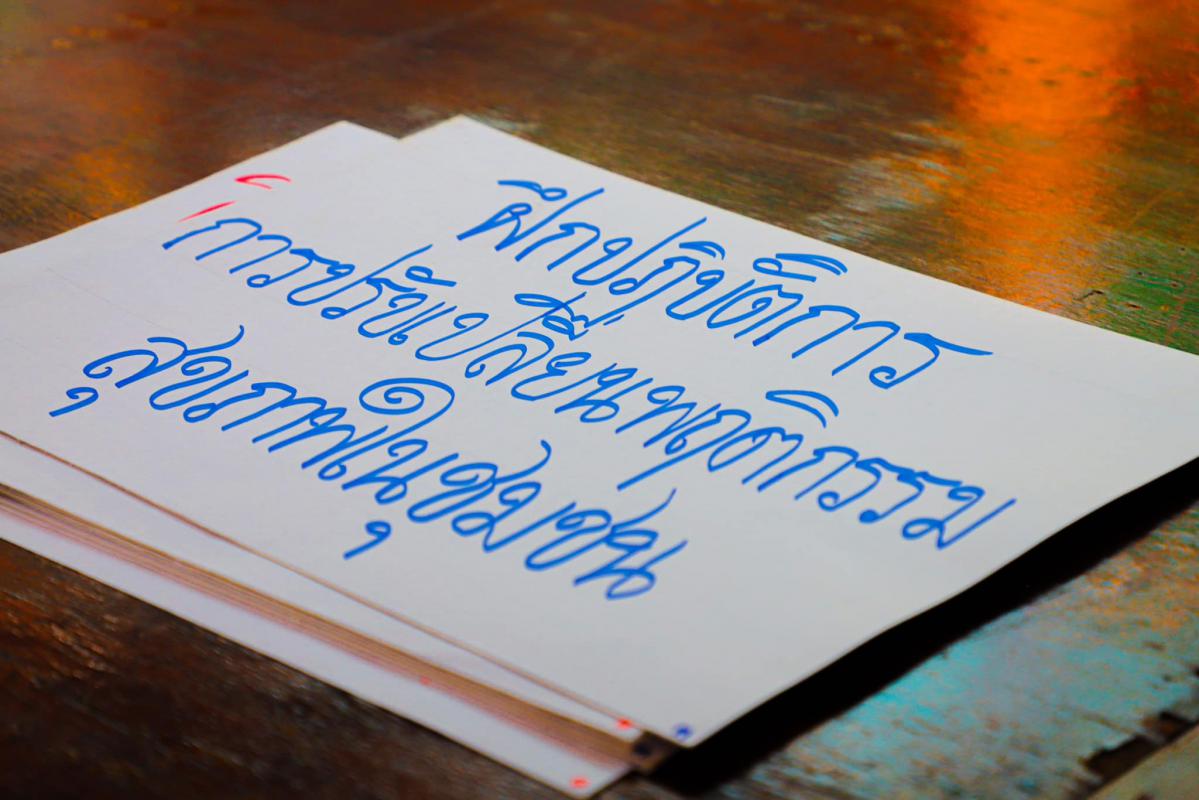 ฝึกปฏิบัติการ
"การปรับเปลี่ยนพฤติกรรม
สุขภาพในชุมชน